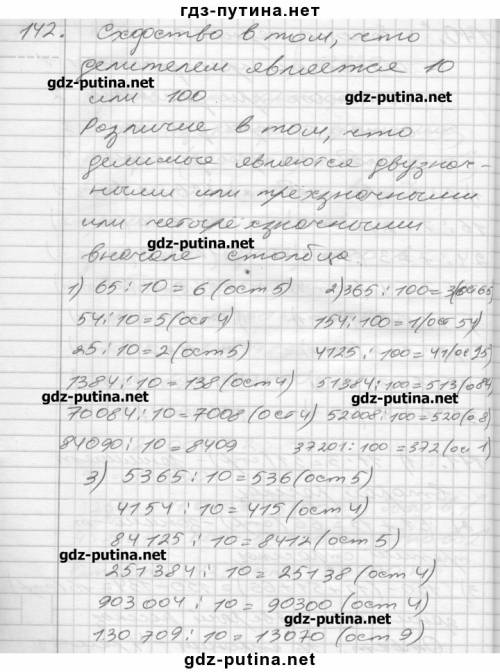 гдз-путина.net
142. Сходство в том, что
делителем является 10
gdz-putina.net
или 100
gdz-putina.net
Различие в том, что
делимые являются двузнач-
ными или трехзначными
или четырехзначными
gdz-putina.net
вначале столбца.
1) 65 : 10 = 6 (ост 5) 2) 365 : 100 = 3 (ост 65)
54 : 10 = 5 (ост 4) 154 : 100 = 1 (ост 54)
25 : 10 = 2 (ост 5) 4125 : 100 = 41 (ос 25)
1384 : 10 = 138 (ост 4) 51384 : 100 = 513 (о 84)
gdz-putina.net gdz-putina.net
70084 : 10 = 7008 (ост 4) 52008 : 100 = 520 (о 8)
84090 : 10 = 8409 37201 : 100 = 372 (ос 1)
3) 5365 : 10 = 536 (ост 5)
4154 : 10 = 415 (ост 4)
84125 : 10 = 8412 (ост 5)
gdz-putina.net
251384 : 10 = 25138 (ост 4)
903004 : 10 = 90300 (ост 4)
gdz-putina.net
130709 : 10 = 13070 (ост 9)
gdz-putina.net